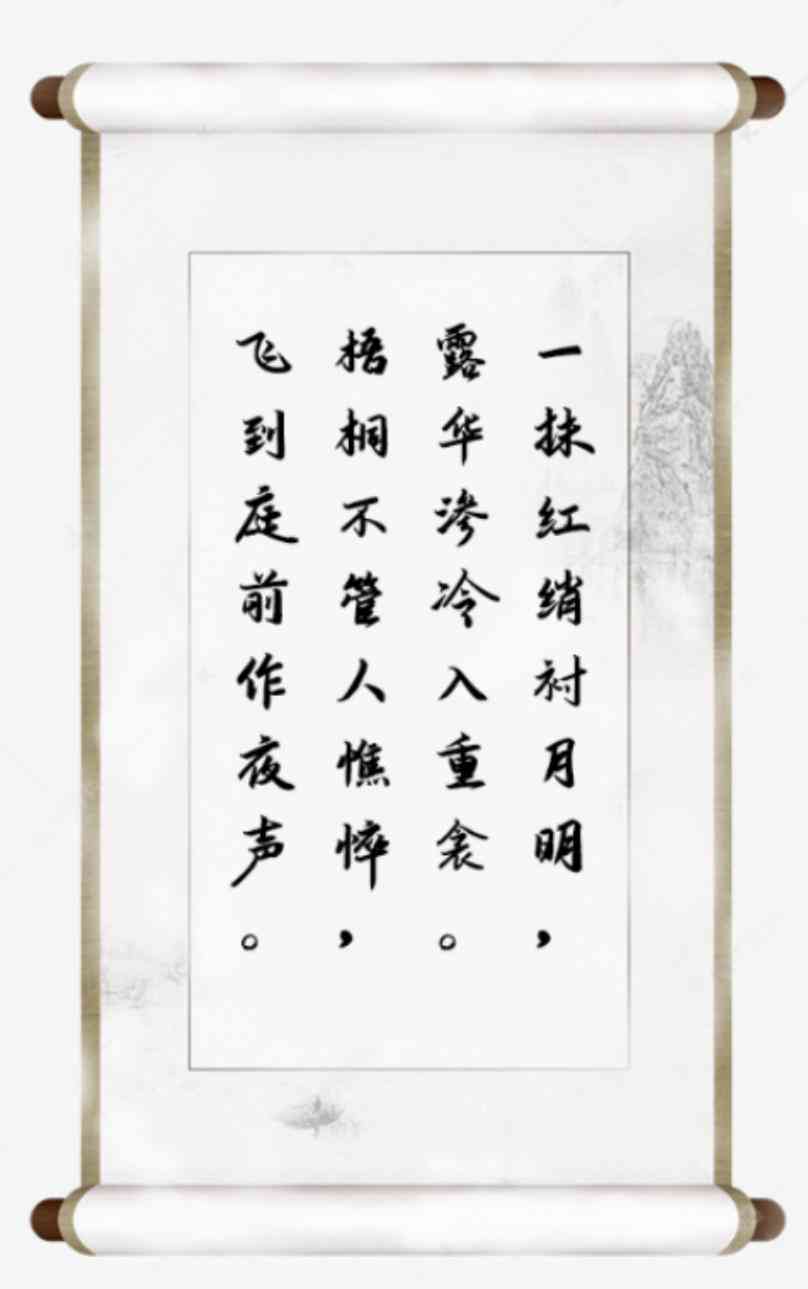 一抹红绡衬月明，
露华渗冷入重衾。
梧桐不管人憔悴，
飞到庭前作夜声。